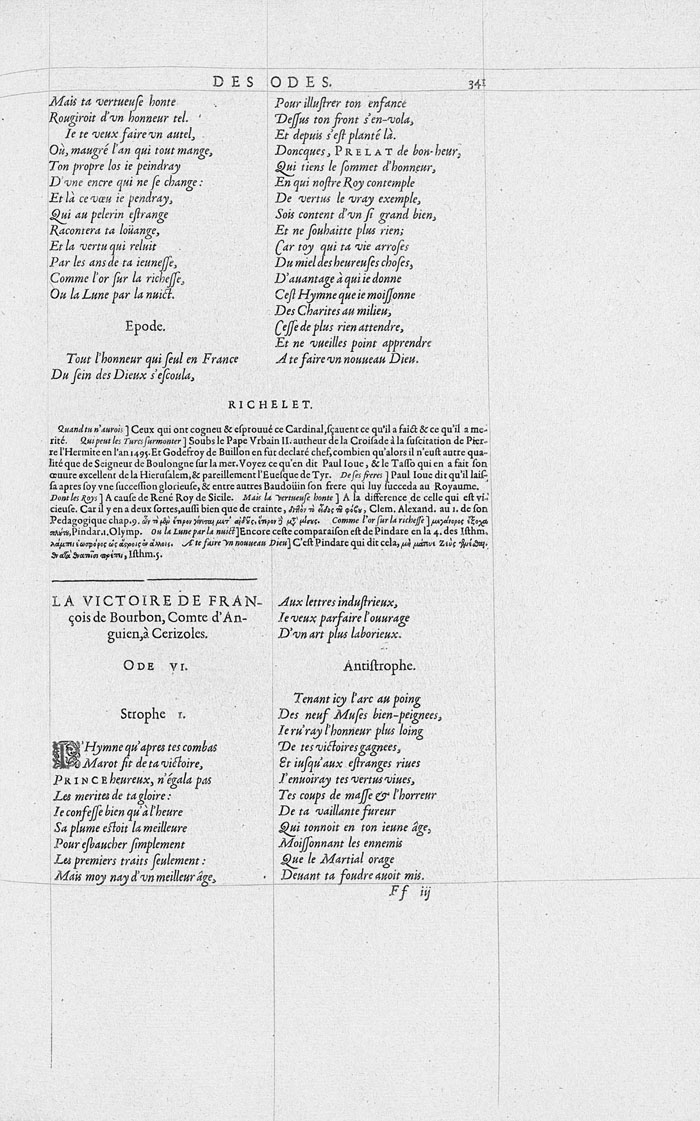 DES ODES. 341
Mais ta vertueuſe honte
Rougiroit d'vn honneur tel.
Ie te veux faire vn autel,
Où, maugré l'an qui tout mange,
Ton propre los ie peindray
D'vne encre qui ne ſe change :
Et là ce vœu ie pendray,
Qui au pelerin eſtrange
Racontera ta loüange,
Et la vertu qui reluit
Par les ans de ta ieuneſſe,
Comme l'or ſur la richeſſe,
Ou la Lune par la nuict.
Epode.
Tout l'honneur qui ſeul en France
Du ſein des Dieux s'eſcoula,
Pour illuſtrer ton enfance
Deſſus ton front s'en-vola,
Et depuis s'eſt planté là.
Doncques, PRELAT de bon-heur,
Qui tiens le ſommet d'honneur,
En qui noſtre Roy contemple
De vertus le vray exemple,
Sois content d'vn ſi grand bien,
Et ne ſouhaitte plus rien;
Car toy qui ta vie arroſes
Du miel des heureuſes choſes,
D'auantage à qui ie donne
Ceſt Hymne que ie moiſſonne
Des Charites au milieu,
Ceſſe de plus rien attendre,
Et ne vueilles point apprendre
A te faire vn nouueau Dieu.
RICHELET.
Quand tu n'aurois ] Ceux qui ont cogneu & eſprouué ce Cardinal, ſçauent ce qu'il a faict & ce qu'il a me-
rité. Qui peut les Turcs ſurmonter ] Soubs le Pape Vrbain II. autheur de la Croiſade à la ſuſcitation de Pier-
re l'Hermite en l'an 1495. Et Godefroy de Buillon en fut declaré chef, combien qu'alors il n'euſt autre qua-
lité que de Seigneur de Boulongne ſur la mer. Voyez ce qu'en dit Paul Ioue, & le Taſſo qui en a fait ſon
œuure excellent de la Hieruſalem, & pareillement l'Eueſque de Tyr. De ſes freres ] Paul Ioue dit qu'il laiſ-
ſa apres ſoy vne ſucceſſion glorieuſe, & entre autres Baudoüin ſon frere qui luy ſucceda au Royaume.
Dont les Roys ] A cauſe de René Roy de Sicile. Mais la vertueuſe honte ] A la difference de celle qui eſt vi-
cieuſe. Car il y en a deux ſortes, auſſi bien que de crainte, Clem. Alexand. au 1. de ſon
Pedagogique chap. 9. Comme l'or ſur la richeſſe ]
Pindar. 1. Olymp. Ou la Lune par la nuict ] Encore ceſte comparaiſon eſt de Pindare en la 4. des Iſthm.
A te faire vn nouueau Dieu ] C'eſt Pindare qui dit cela,
Iſthm. 5.
LA VICTOIRE DE FRAN-
çois de Bourbon, Comte d'An-
guien, à Cerizoles.
ODE VI.
Strophe 1.
L'Hymne qu'apres tes combas
Marot fit de ta victoire,
PRINCE heureux, n'égala pas
Les merites de ta gloire :
Ie confeſſe bien qu'à l'heure
Sa plume eſtoit la meilleure
Pour eſbaucher ſimplement
Les premiers traits ſeulement :
Mais moy nay d'vn meilleur âge,
Aux lettres induſtrieux,
Ie veux parfaire l'ouurage
D'vn art plus laborieux.
Antiſtrophe.
Tenant icy l'arc au poing
Des neuf Muſes bien-peignees,
Ie ru'ray l'honneur plus loing
De tes victoires gagnees,
Et iuſqu'aux eſtranges riues
I'enuoiray tes vertus viues,
Tes coups de maſſe & l'horreur
De ta vaillante fureur
Qui tonnoit en ton ieune âge,
Moiſſonnant les ennemis
Que le Martial orage
Deuant ta foudre auoit mis.
Ff iij